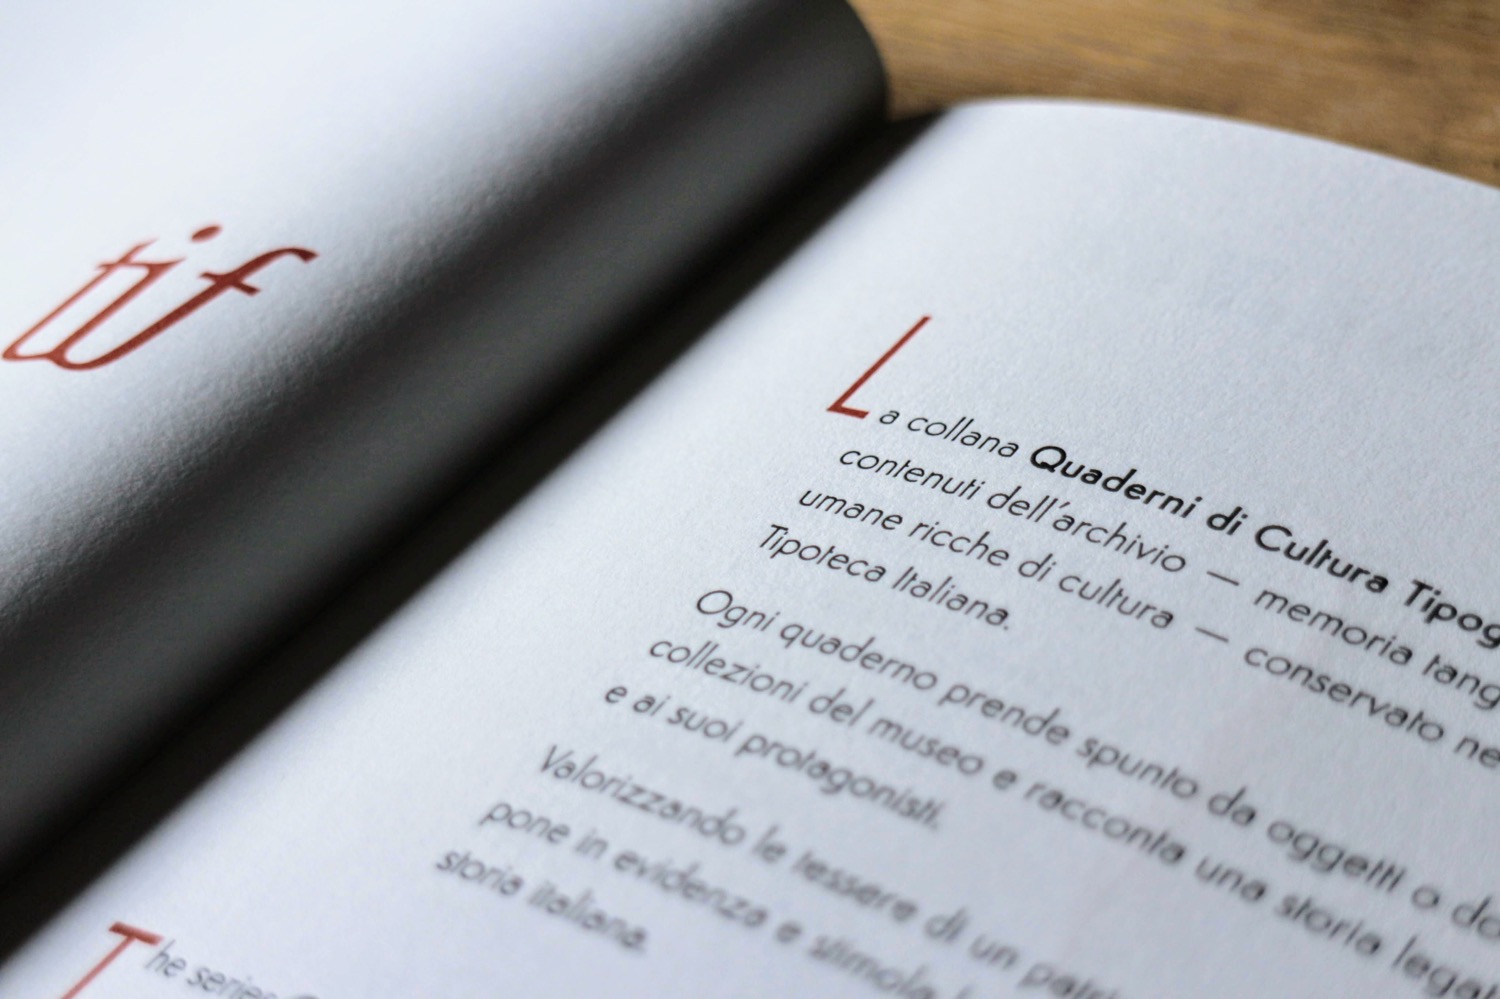 tif
La collana Quaderni di Cultura Tipog
contenuti dell'archivio — memoria tang
umane ricche di cultura — conservato ne
Tipoteca Italiana.
Ogni quaderno prende spunto da oggetti o do
collezioni del museo e racconta una storia legat
e ai suoi protagonisti.
Valorizzando le tessere di un patri
pone in evidenza e stimola
storia italiana.
The series